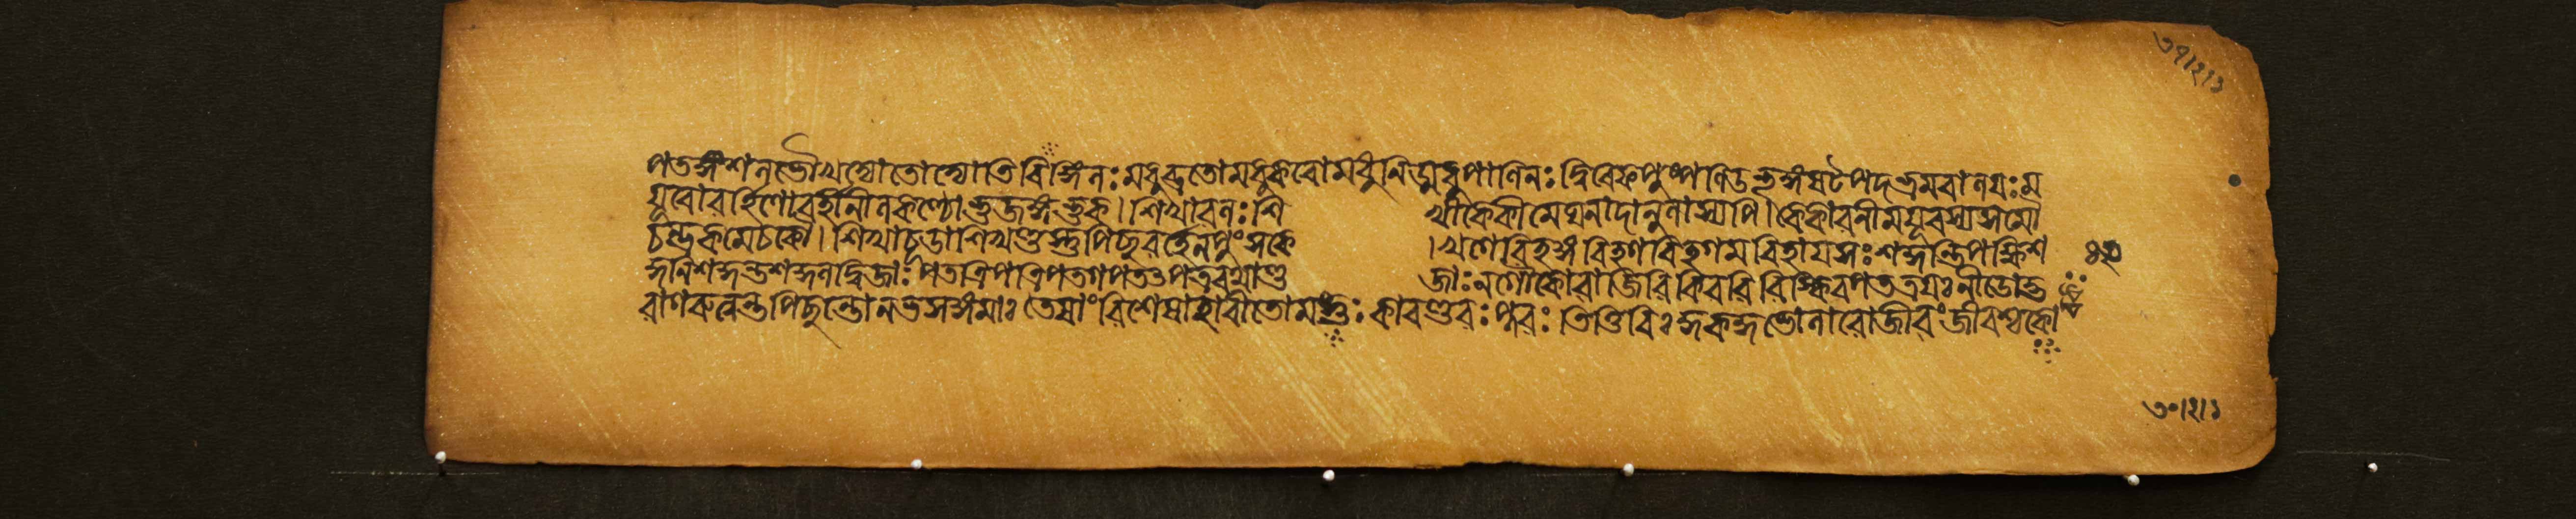 পতঙ্গশলভৌখদ্যোতোজ্যোতিরিঙ্গিনঃমধুব্রতোমধুকরোমধুলিণ্মধুপালিনঃদ্বিরেফপুষ্পলিড্ভৃঙ্গষট্পদভ্রমরালযঃম
যূরোবর্হিণোবর্হীনীলকণ্ঠোভুজঙ্গভুক।শিখাবলঃশিখীকেকীমেঘনাদানুলাস্যপি।কেকাবানীমযূরস্যসমৌ
চন্দ্রকমেচকৌ।শিখাচূডাশিখণ্ডস্তুপিচ্ছবর্হেনপুংসকে।খগেবিহঙ্গবিহগবিহগমবিহাযসঃশকুন্তিপক্ষিশ
কুনিশকুন্তশকুনদ্বিজাঃপতত্রিপত্রিপতগপতত্পত্ররথাণ্ডজাঃনগৌকোবাজিবিকিরবিবিষ্কিরপতত্রযঃনীডোদ্ভ
বাগরুত্মন্তপিচ্ছন্তোনভসঙ্গমাঃতেষাংবিশেষাহারীতোমদ্গুঃকারণ্ডবঃপ্লবঃতিত্তিরিঃকুক্কুভোলাবোজীবংজীবশ্চকো